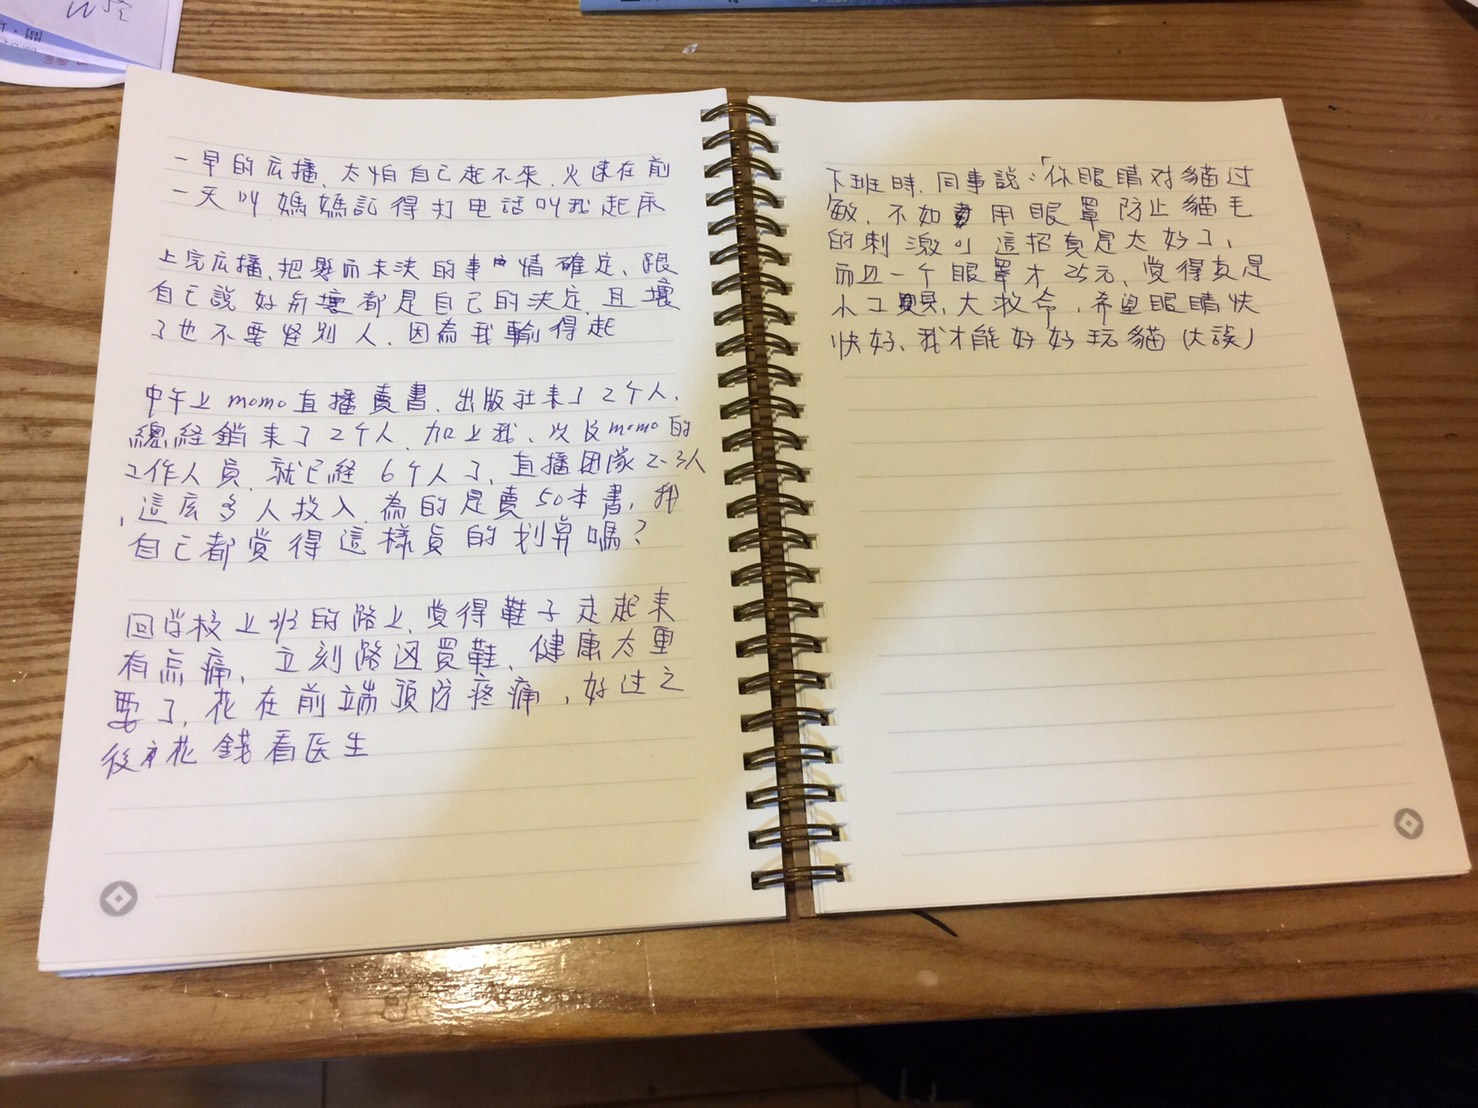 一早的広播、太怕自己起不來、火速在前
一天叫媽媽記得打电話叫我起床
上完広播、把懸而未決的事情確定、跟
自己說好与壞都是自己的決定、且壞
了也不要怪別人、因為我輸得起
中午上momo直播賣書、出版社来了2个人、
總経銷来了2个人、加上我、以及momo的
工作人員、就已経6个人了、直播団隊2-3人
、這広多人投入、為的是賣50本書、我
自己都覚得這樣真的划算嗎？
回学校上班的路上、覚得鞋子走起来
有点痛、立刻路过買鞋、健康太重
要了、花在前端預防疼痛、好过之
後才花錢看医生
下班時、同事說：「你眼睛对貓过
敏、不如用眼罩防止貓毛
的刺激」這招真是太好了、
而且一个眼罩才25元、覚得真是
小工具、大救命、希望眼睛快
快好、我才能好好玩貓（大誤）